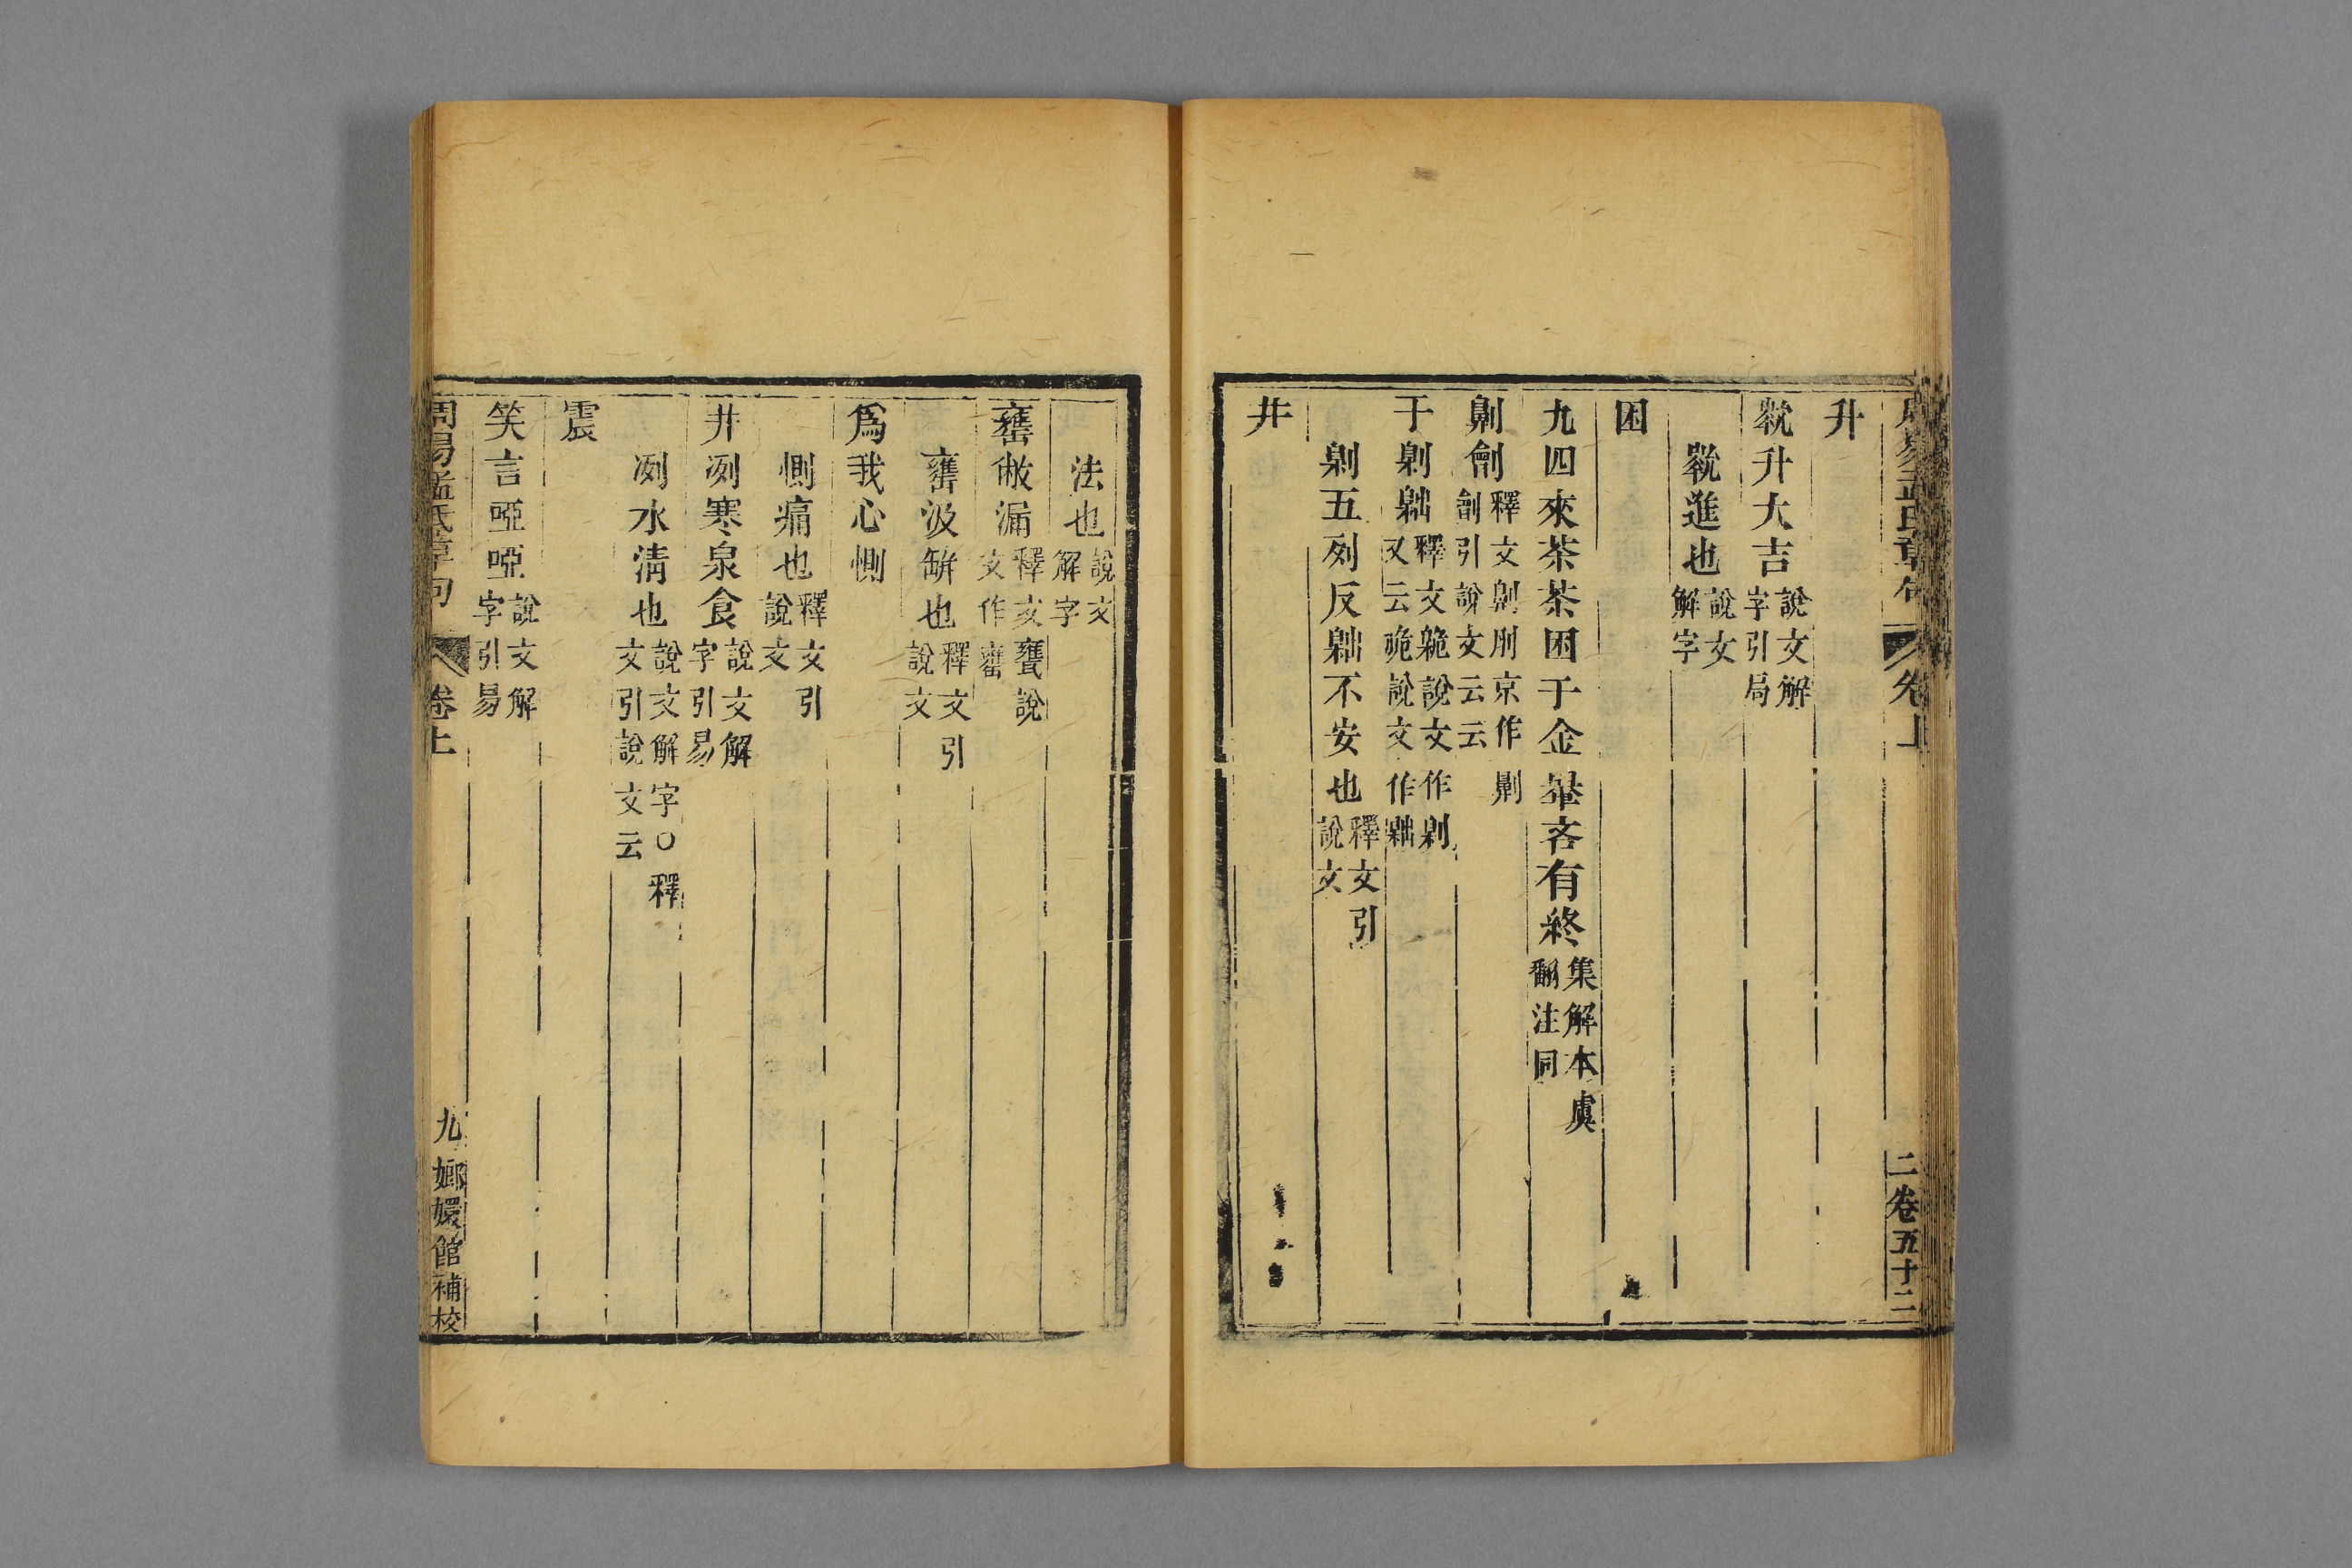 周易孟氏章句 卷上 二 卷五十二
升
㽙升大吉說文解字引易
㽙進也說文解字
困
九四來荼荼困于金轝吝有終集解本虞翻注同
劓劊釋文劓刖京作劓劊引說文云云
于劓䵳釋文臲說文作劓又云卼說文作䵳
劓五列反䵳不安也釋文引說文
井
法也說文解字
罋敝漏釋文甕說文作罋
罋汲缾也釋文引說文
爲我心惻
惻痛也釋文引說文
井洌寒泉食說文解字引易
洌水淸也說文解字〇釋文引說文云
震
笑言啞啞說文解字引易
周易孟氏章句 卷上 九 嫏嬛館補校